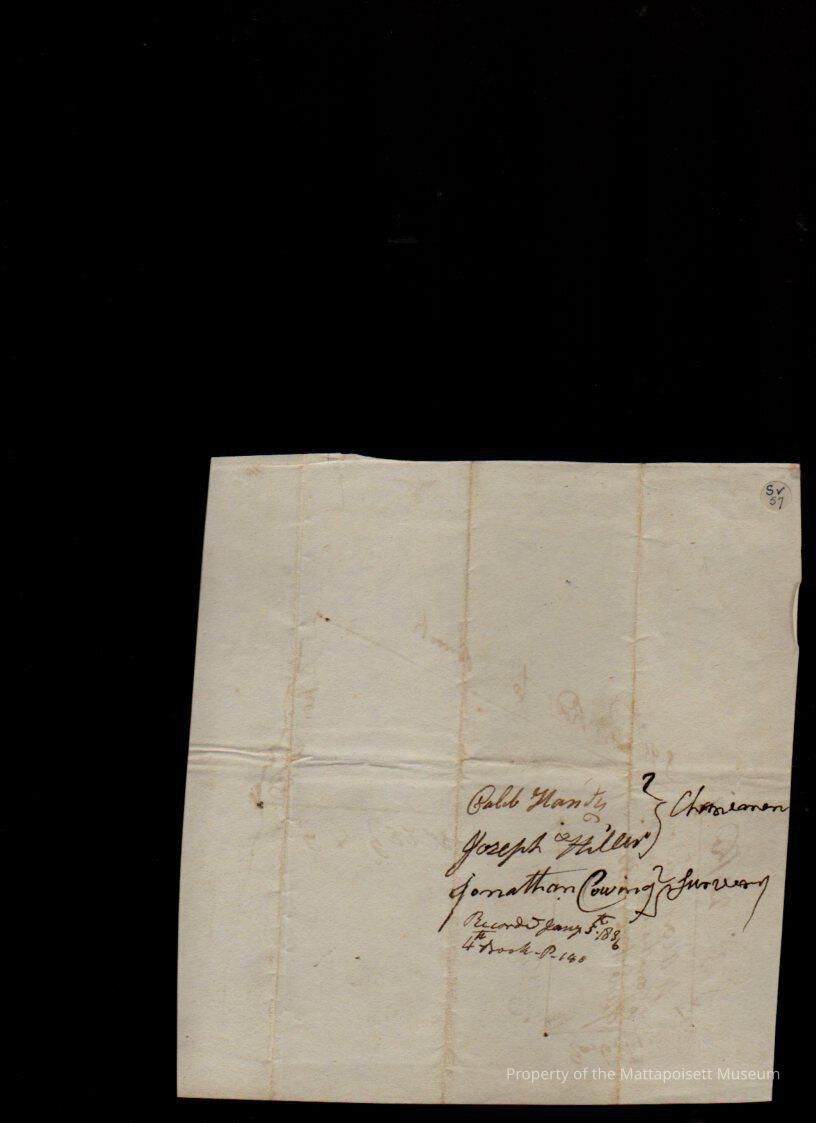 Sv
57
Caleb Handy } Chainemen
&
Joseph Hiller
Jonathan Cowing } Survery
Recorded Jany 5th 1836
4th Book - P - 140
Property of the Mattapoisett Museum